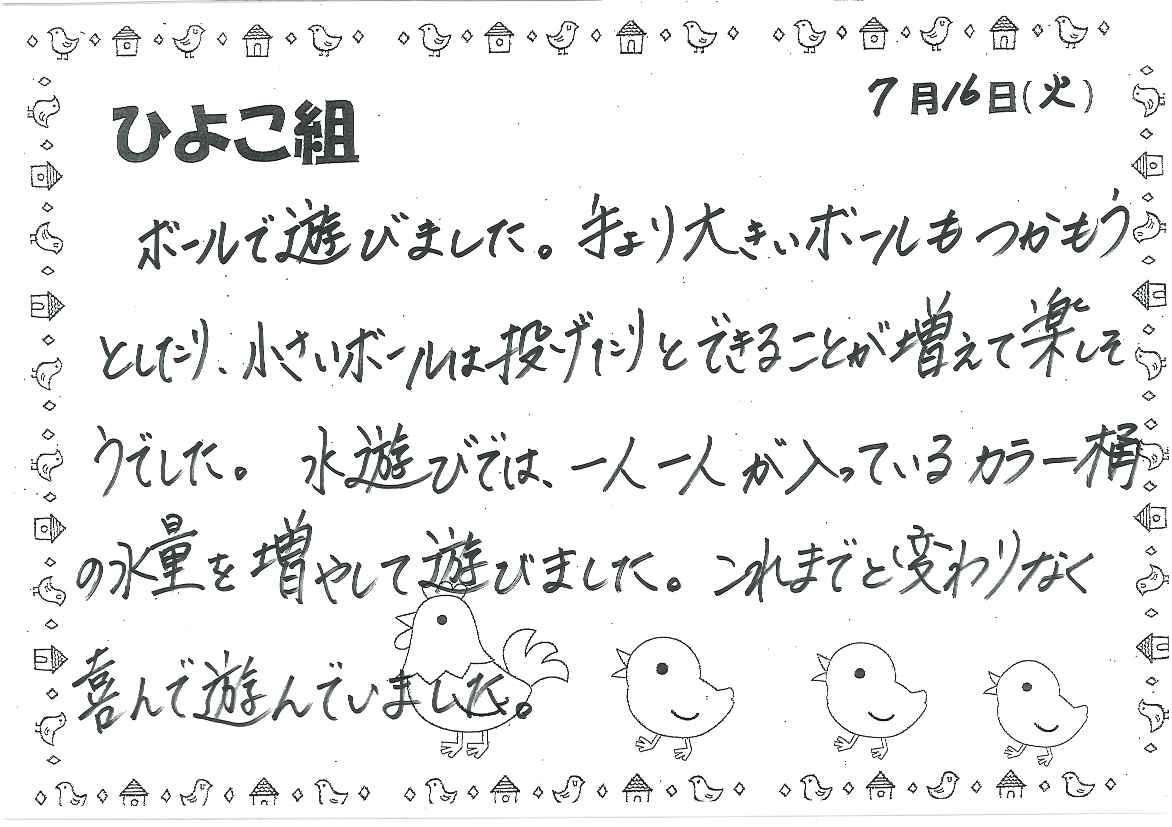 7月16日(火)
ひよこ組
ボールで遊びました。手より大きいボールもつかもう
としたり、小さいボールは投げたりとできることが増えて楽しそ
うでした。 水遊びでは、一人一人が入っているカラー桶
の水量を増やして遊びました。これまでと変わりなく
喜んで遊んでいました。